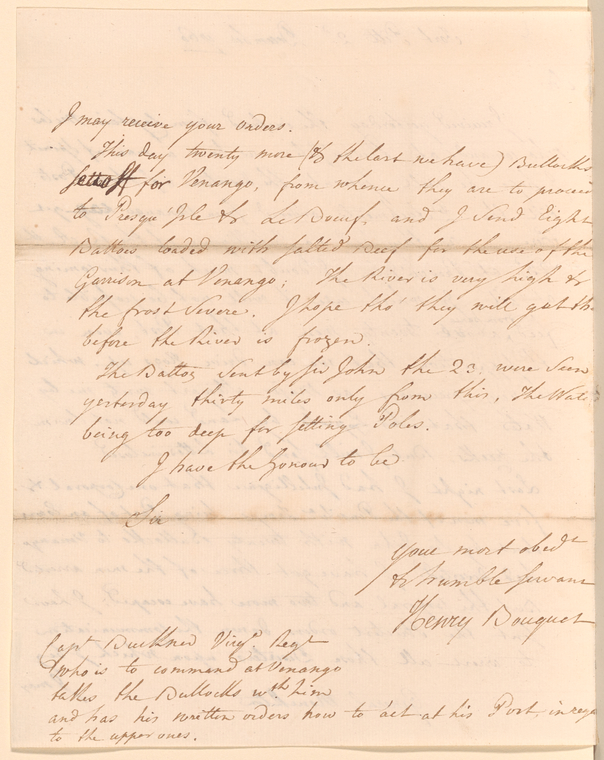 I may receive your orders.
This day twenty more (& the last we have) Bullocks
sett off for Venango, from whence they are to proceed
to Presqu'Isle & Le Boeuf, and I Send Eight
Battoes loaded with Salted Beef for the use of the
Garrison at Venango; The River is very high &
the frost Severe. I hope tho' they will get
before the River is frozen.
The Battoes Sent by Sir John the 23. were Seen
yesterday thirty miles only from this, The Wat
being too deep for Setting Poles.
I have the honour to be
Sir
Your most obedt
& humble Servant
Henry Bouquet
Capt Buckner Virga Regt
who is to command at Venango
takes the Bullocks wth him
and has his written orders how to act at his Post, in rega
to the upper ones.